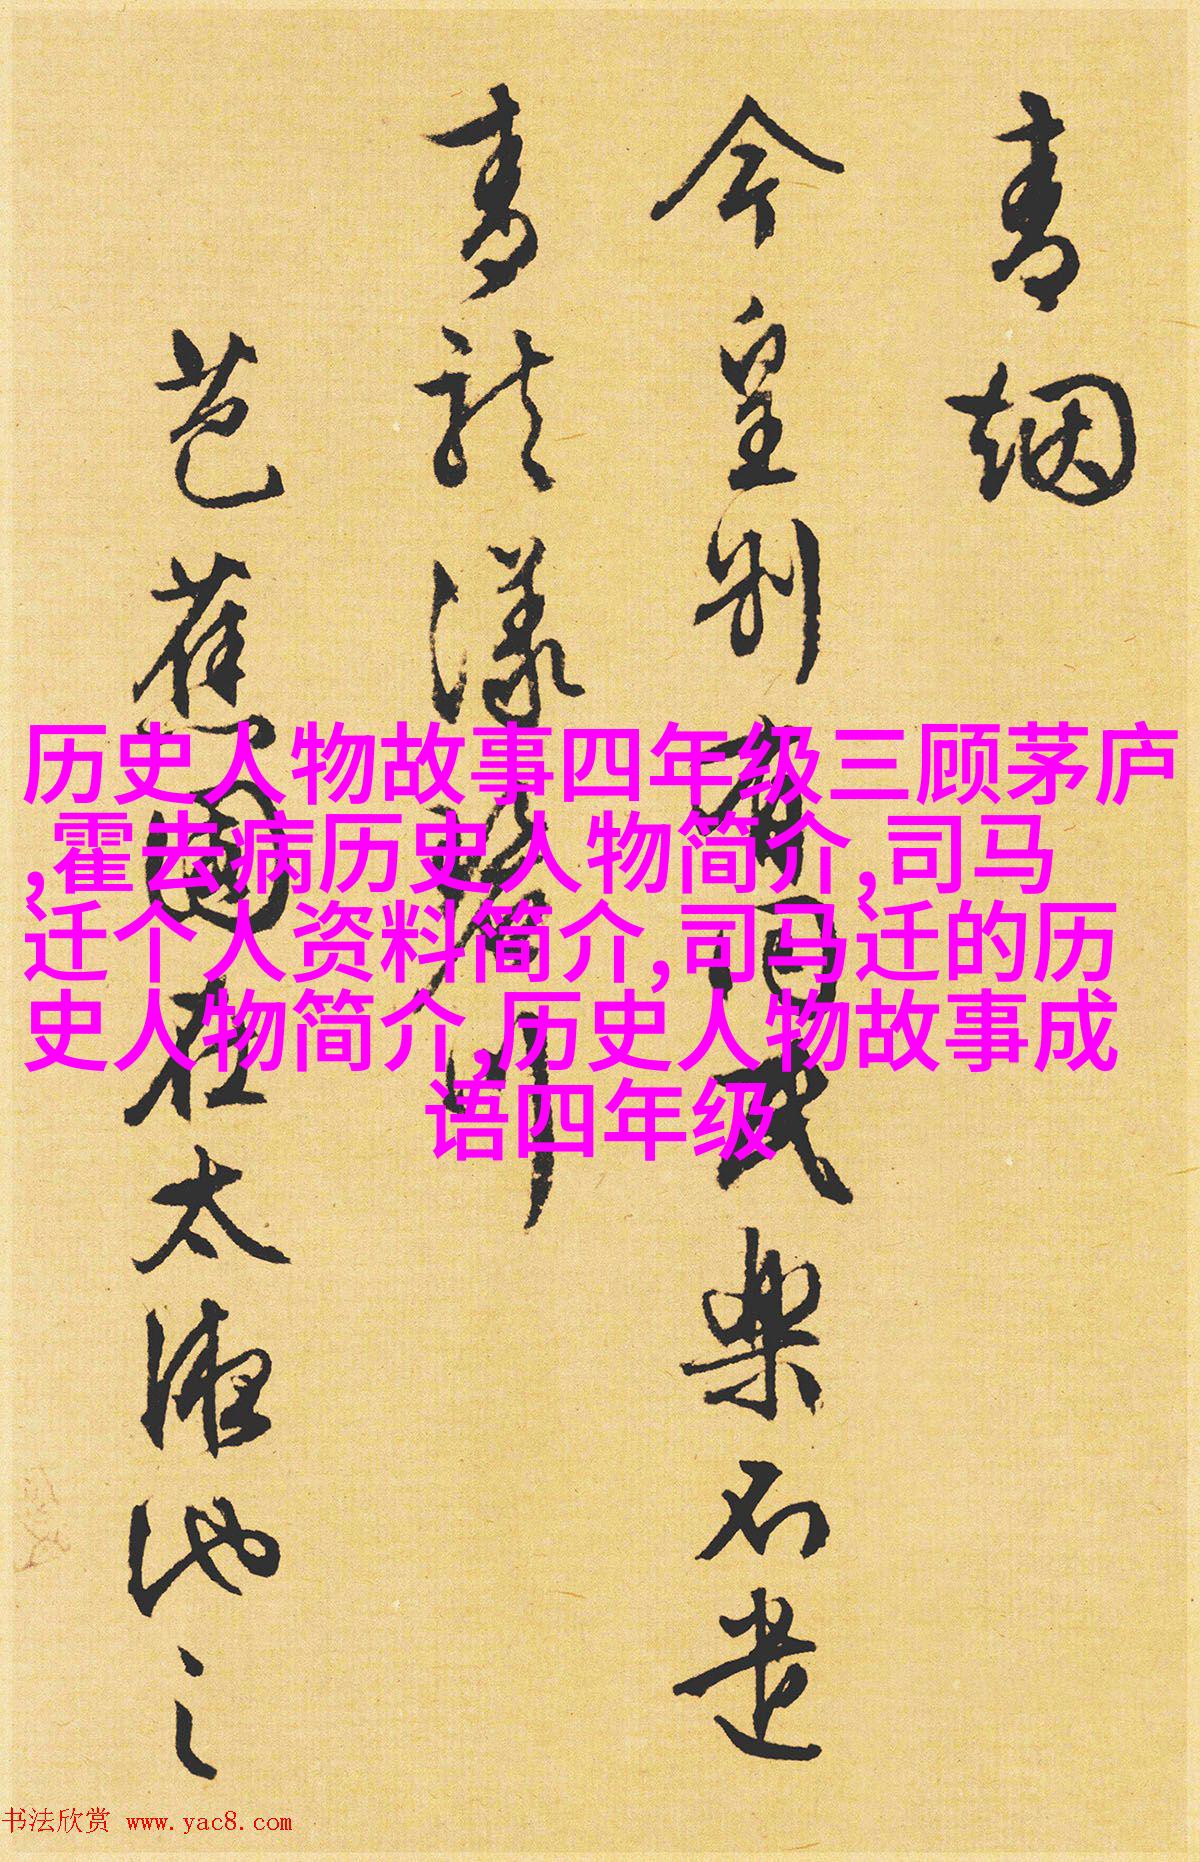 青烟
今皇别有回
武樂石遣
青龍漾
芭蕉園在太液池之
历史人物故事四年级三顾茅庐
,霍去病历史人物简介,司马
迁个人资料简介,司马迁的历
史人物简介,历史人物故事成
语四年级
书法欣赏 www.yac8.com